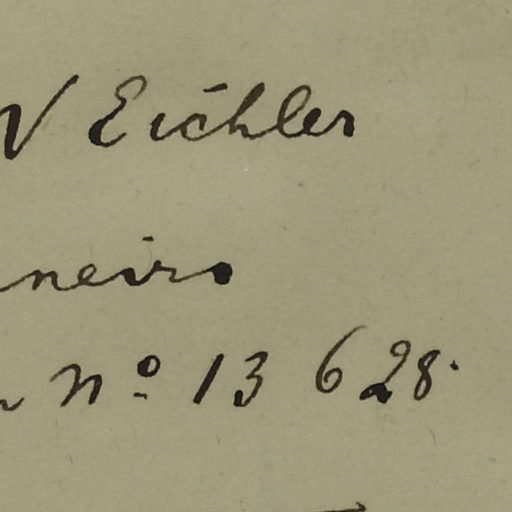 W Eichler
neiro
n Nº 13 628.